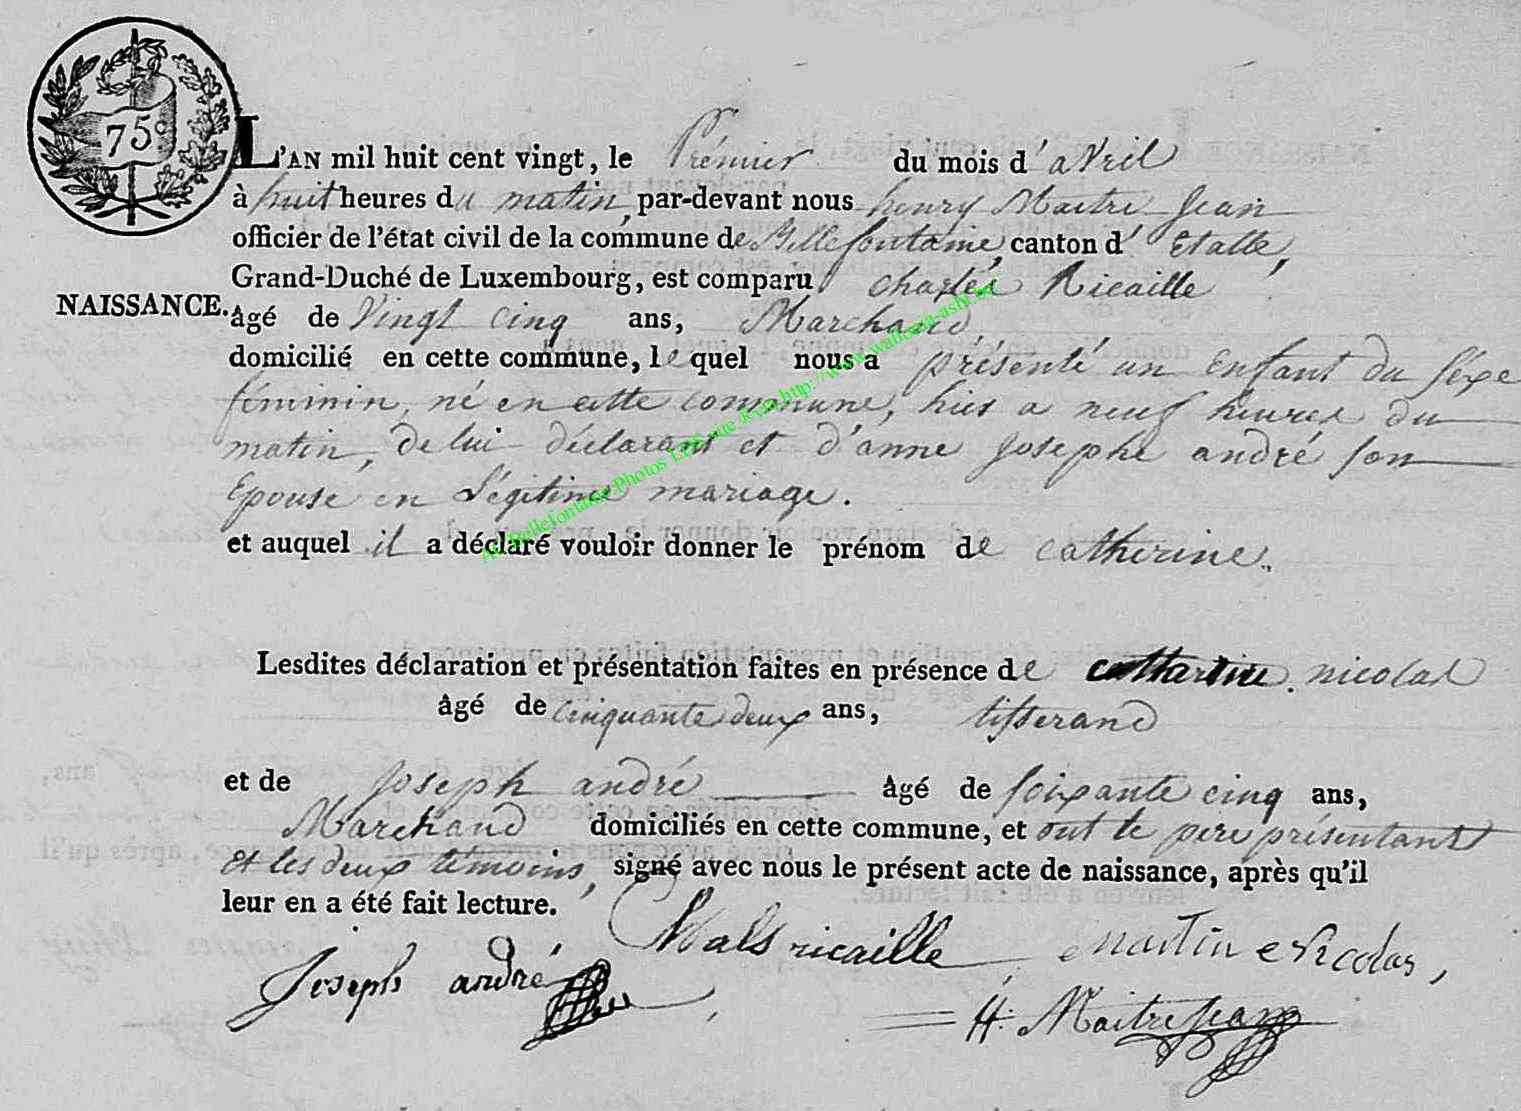 75c
L'AN mil huit cent vingt, le Prémier du mois d'avril
à huit heures du matin, par-devant nous henry Maitre Jean
officier de l'état civil de la commune de Bellefontaine, canton d'Etalle,
Grand-Duché de Luxembourg, est comparu charles Ricaille
NAISSANCE.
âgé de Vingt cinq ans, Marchand
domicilié en cette commune, lequel nous a présenté un Enfant du séxe
féminin, né en cette commune, hier a neuf heures du
matin, de lui déclarant et d'anne Josephe andré son
Epouse en Légitime mariage.
et auquel il a déclaré vouloir donner le prénom de catherine.
Lesdites déclaration et présentation faites en présence de nicolas
âgé de cinquante deux ans, tisserand
et de Joseph andré âgé de soixante cinq ans,
Marchand domiciliés en cette commune, et ont le pere présentant
et les deux témoins, signé avec nous le présent acte de naissance, après qu'il
leur en a été fait lecture.
ricaille Martin Nicolas,
Joseph andré
H: Maitrejean
Bellefontaine Photos http://www.wallonia-asbl.be